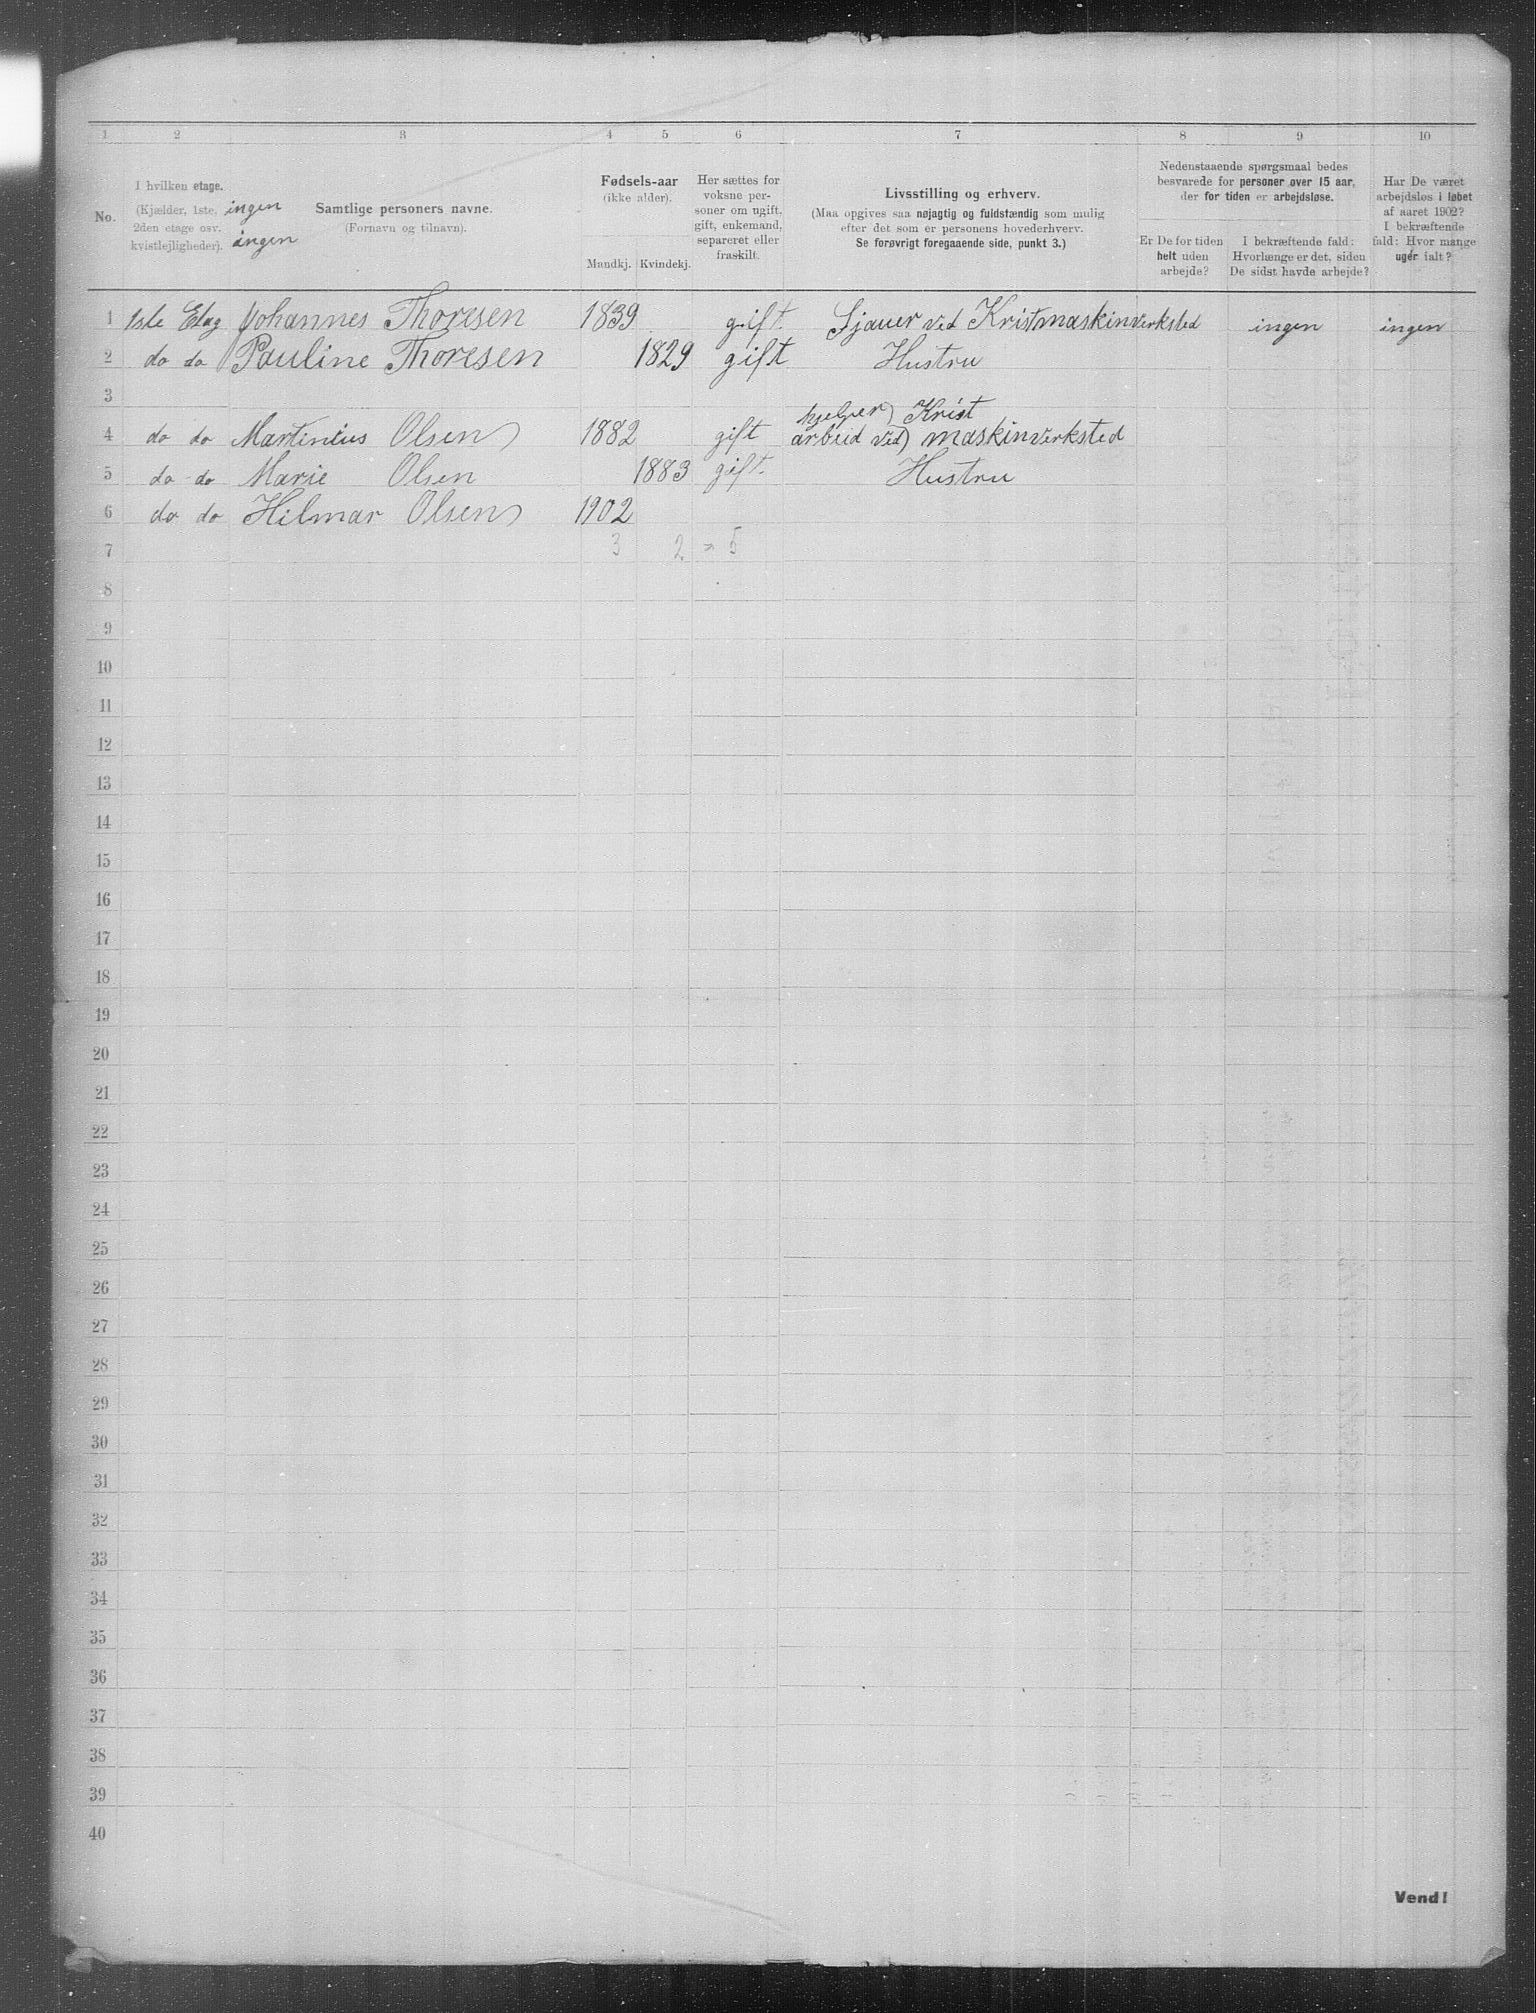 1 2 3 4 5 6 7 8 9 10
No.
I hvilken etage.
(Kjælder, 1ste, ingen
2den etage osv.
kvistlejligheder). ingen
Samtlige personers navne.
(Fornavn og tilnavn).
Fødsels-aar
(ikke alder).
Mandkj. Kvindekj.
Her sættes for
voksne per-
soner om ugift,
gift, enkemand,
separeret eller
fraskilt.
Livsstilling og erhverv.
(Maa opgives saa nøjagtig og fuldstændig som mulig
efter det som er personens hovederhverv.
Se forøvrigt foregaaende side, punkt 3.)
Nedenstaaende spørgsmaal bedes
besvarede for personer over 15 aar,
der for tiden er arbejdsløse.
Er De for tiden
helt uden
arbejde?
I bekræftende fald:
Hvorlænge er det, siden
De sidst havde arbejde?
Har De været
arbejdsløs i løbet
af aaret 1902?
I bekræftende
fald: Hvor mange
uger ialt?
1 1ste Etag Johannes Thoresen 1839 gift Sjauer ved Krist maskinverksted ingen ingen
2 do do Pauline Thoresen 1829 gift Hustru
3
hjelper Krist
4 do do Martinius Olsen 1882 gift arbeid ved maskinverksted
5 do do Marie Olsen 1883 gift. Hustru
6 do do Hilmar Olsen 1902
7 3 2 = 5
8
9
10
11
12
13
14
15
16
17
18
19
20
21
22
23
24
25
26
27
28
29
30
31
32
33
34
35
36
37
38
39
40
Vend!